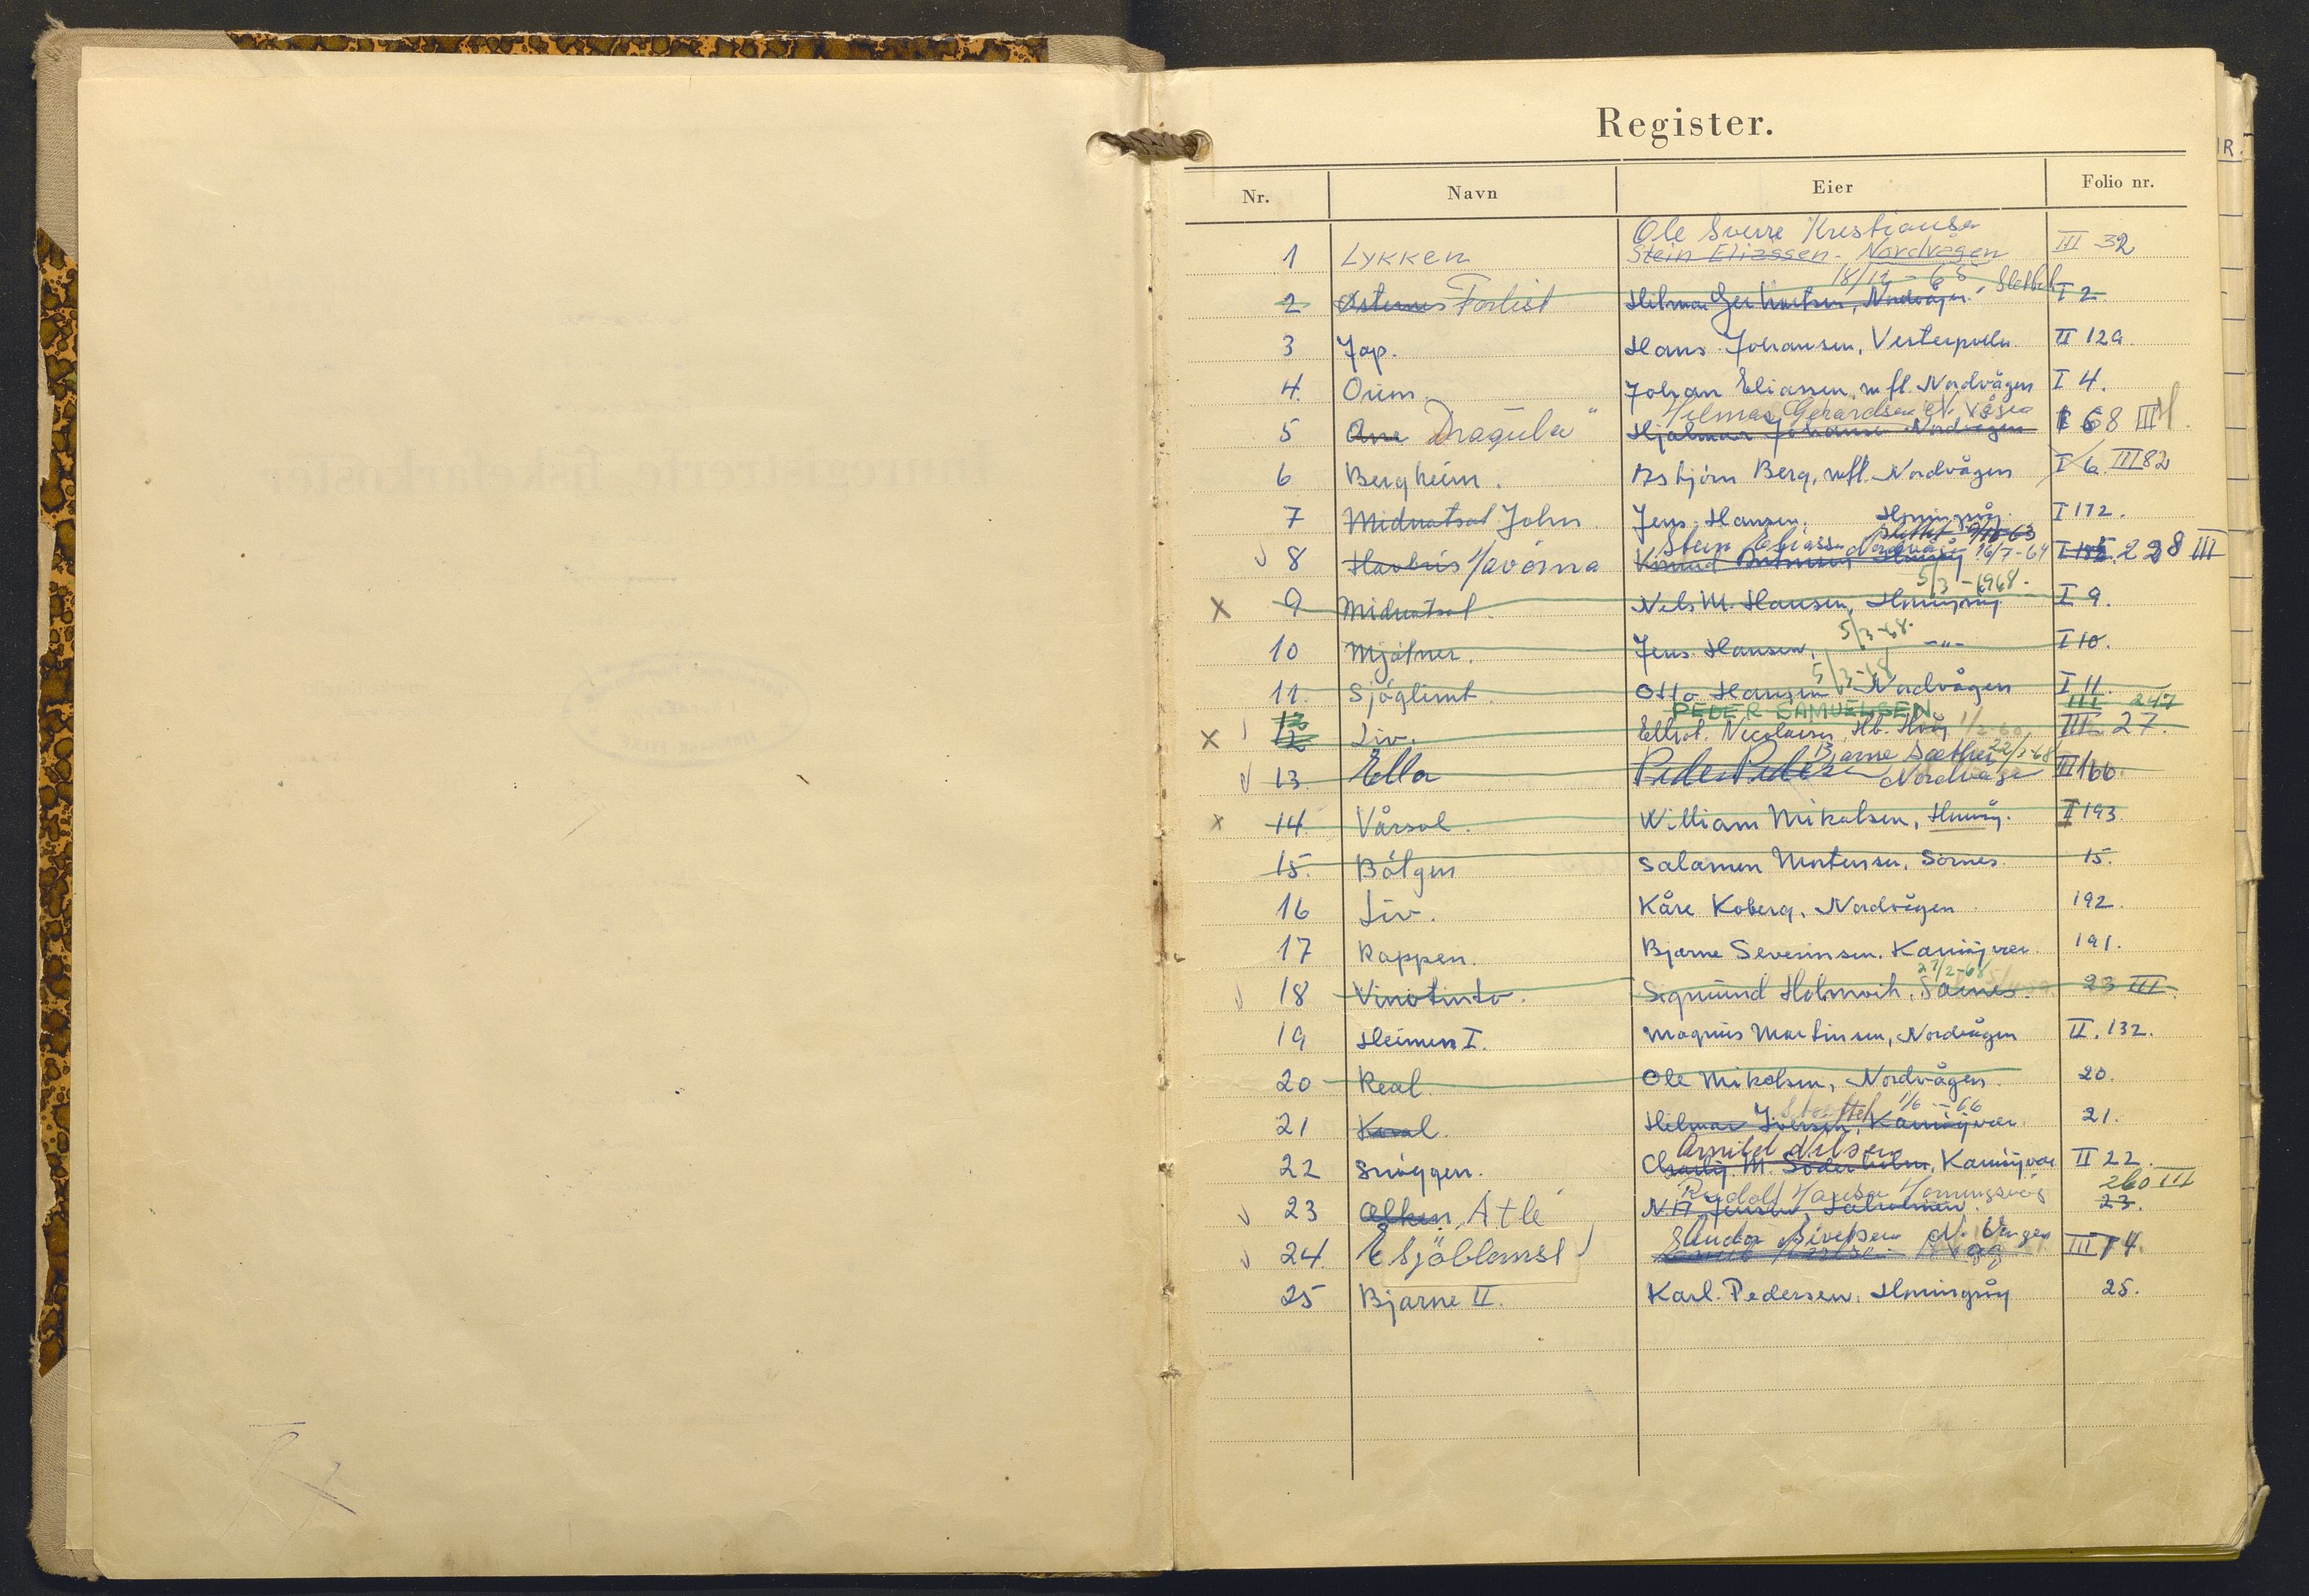 Register.
Nr. Navn Eier Folio nr.
Ole Sverre Kristiansen
1 Lykken Stein Eliassen - Nordvågen III 32
18/12 - 65 Slettet
2 Forlist Hilmar Gerhartsen, Nordvågen I 2
3 Jap. Hans Johansen, Vesterpollen II 129
4. Orion Johan Eliassen, m fl. Nordvågen I 4.
Hilmar Gerhardsen N. Vågen
5 Arne Dragula" Hjalmar Johansen Nordvågen 68 III
6 Bergheim. Asbjörn Berg, mfl. Nordvågen I 6 III 82
7 Midnatsol John. Jens Hansen, Hnningsvåg I 172.
Slettet 63
Stein Eliassen Nordvåg 16/7-64
8 Havbris Havörna 228 III
5/3 - 1968.
X 9 Midnatsol. Nels M. Hansen, Hnningsvåg I 9.
5/3-68.
10 Mjølner. Jens Hansen, -"- I 10.
5/3-68
11. Sjøglimt. Otto Hansen Nordvågen I 11.
PEDER SAMUELSEN III 247
X 12 Liv. Nicolaisen, Hb. Hvåg III 27.
Bjarne Sæther 22/2-68
13. Ella Peder Pedersen Nordvåge III 166.
x 14. Vårsol. William Mikalsen, Hnvåg. II 193
15. Bölgen Salamon Mortensen, Sarnes. 15.
16 Liv. Kåre Koberg, Nordvågen 192.
17 Rappen. Bjarne Severinsen. Kamøyvær. 191.
27/2-68
18 Vinotinto. Sigmund Holmvik, Sarnes. 23 III.
19 Heimen I. Magnus Martinsen, Nordvågen II. 132.
20 Real. Ole Mikalsen, Nordvågen. 20.
Slettet 1/6 - 66
21 Hilmar Iversen, Kamøyvær. 21.
Arnild Nilsen
22 Snöggen. Charly M. Söderholm, Kamøyvær II 22.
Rudolf Hansen Honningsvåg 260 III
23 Alken, Atle N.A. Jensen, 23.
Sivertsen N. Vågen
24. Sjöblomst III 74.
25 Bjarne II. Karl Pedersen. Hnningsvåg 25.
R.